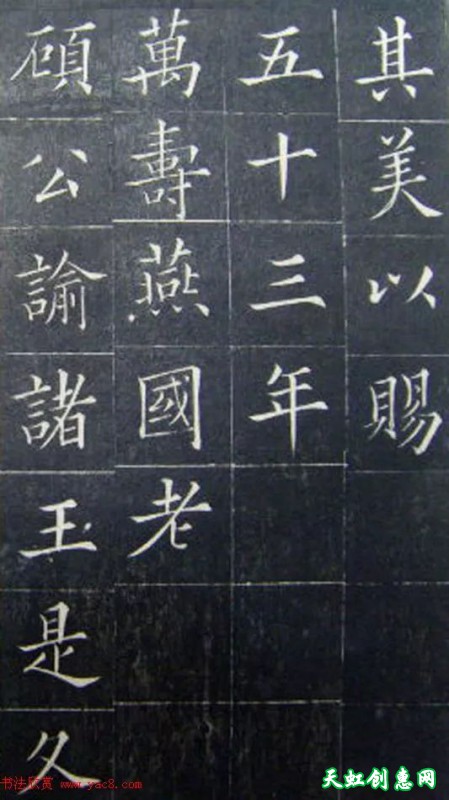 其美以賜
五十三年
萬壽燕國老
碩公諭諸王是久
书法欣赏 www.yac8.com
天虹创惠网